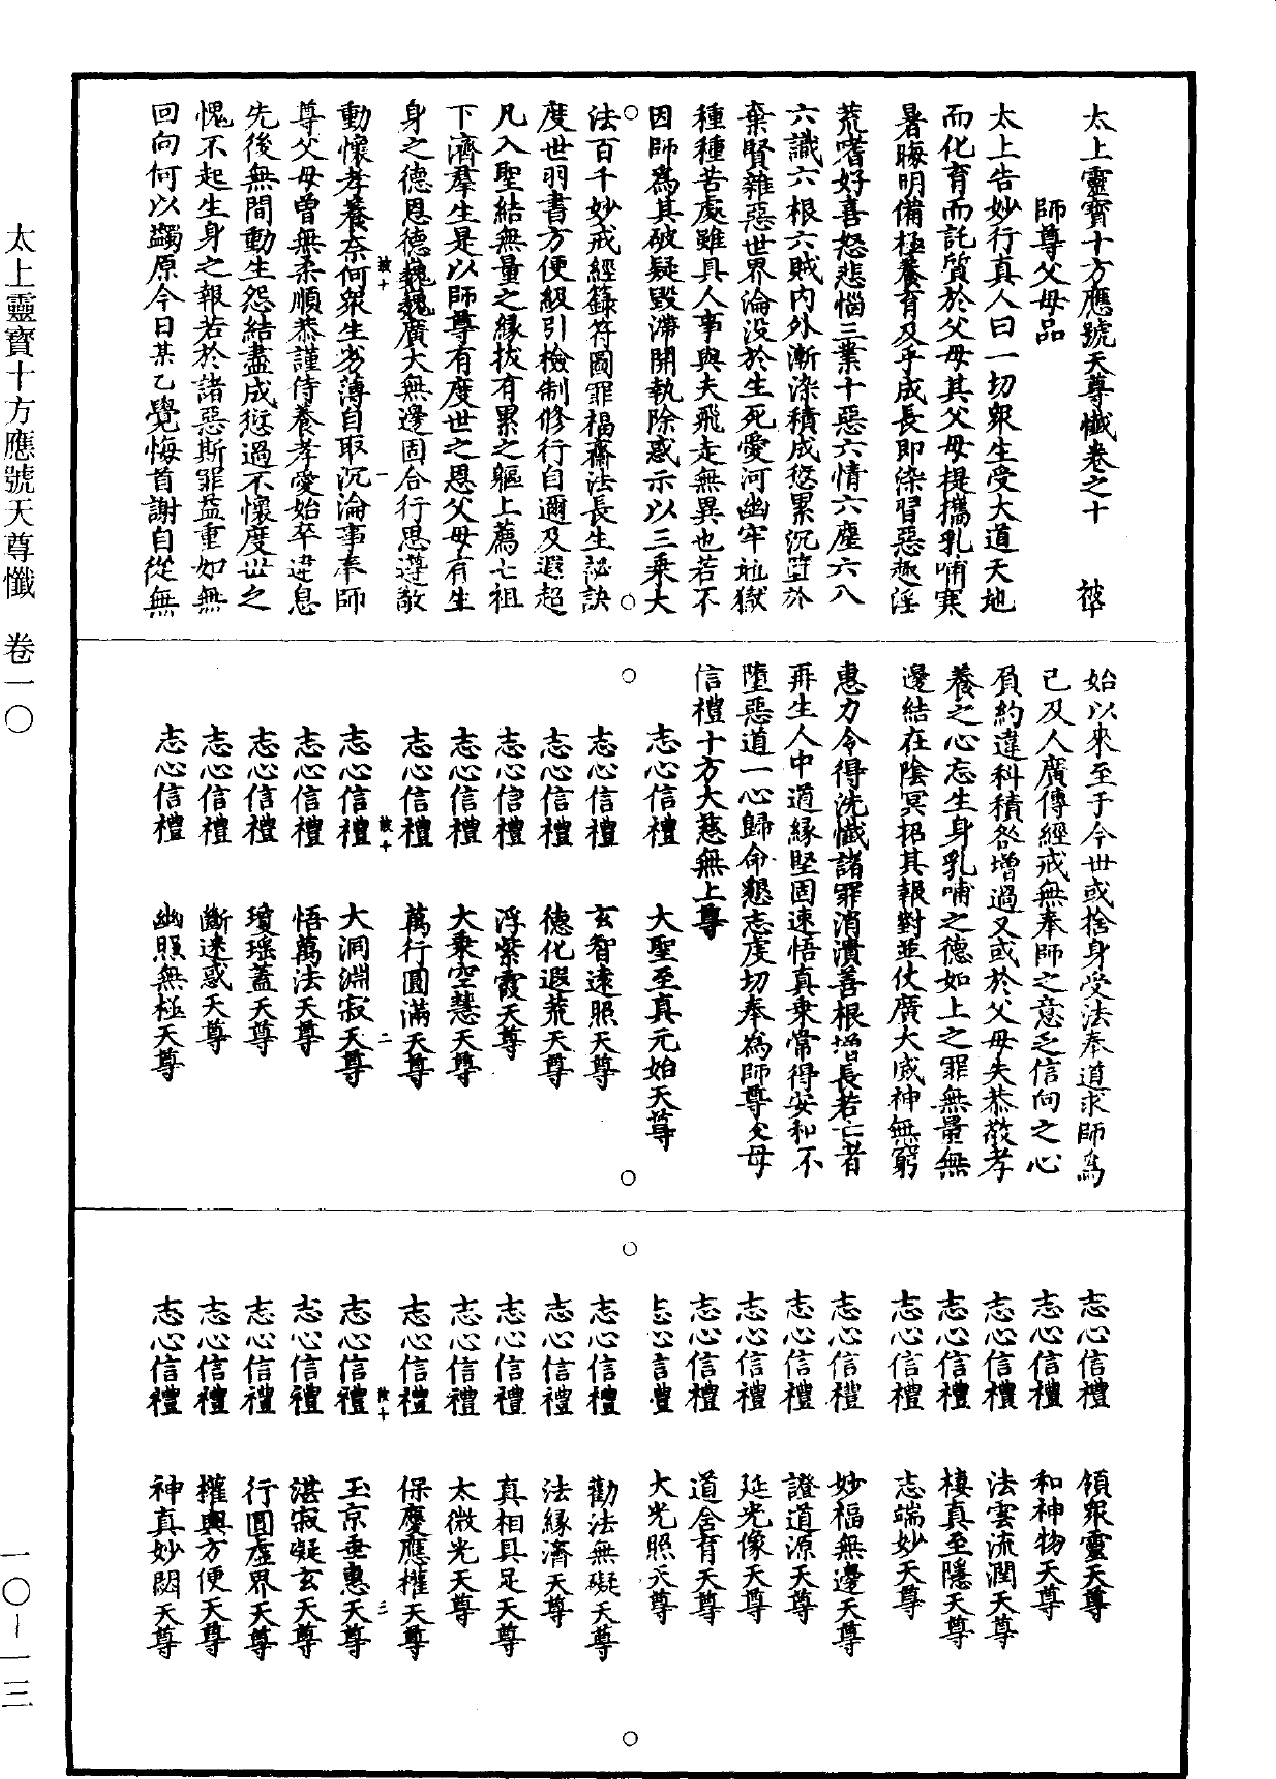 太上靈寶十方應號天尊懺卷之十 被
師尊父母品
太上告妙行真人曰一切眾生受大道天地
而化育而託質於父母其父母提攜乳哺寒
暑晦明備極養育及乎成長即染習惡趣淫
荒嗜好喜怒悲惱三業十惡六情六塵六八
六識六根六賊內外漸染積成愆累沉墮於
棄賢雜惡世界淪没於生死愛河幽牢地獄
種種苦處雖具人事與夫飛走無異也若不
因師為其破疑毀滯開執除惑示以三乘大
法百千妙戒經籙符圖罪福齋法長生祕訣
度世羽書方便級引檢制修行自邇及遐超
凡入聖結無量之緣拔有累之軀上薦七祖
下濟羣生是以師尊有度世之恩父母有生
身之德恩德巍巍廣大無邊固合行思遵敬
動懷孝養奈何眾生劣薄自取沉淪事奉師
尊父母曾無柔順恭謹侍養孝愛始卒違息
先後無間動生怨結盡成愆過不懷度世之
愧不起生身之報若於諸惡斯罪益重如無
回向何以蠲原今日某乙覺悔首謝自從無
始以來至于今世或捨身受法奉道求師為
己及人廣傳經戒無奉師之意乏信向之心
負約違科積咎增過又或於父母失恭敬孝
養之心忘生身乳哺之德如上之罪無量無
邊結在陰冥招其報對並仗廣大威神無窮
惠力令得洗懺諸罪消潰善根增長若亡者
再生人中道緣堅固速悟真乘常得安和不
墮惡道一心歸命懇志虔切奉為師尊父母
信禮十方大慈無上尊
志心信禮 大聖至真元始天尊
志心信禮 玄智遠照天尊
志心信禮 德化遐荒天尊
志心信禮 浮紫霞天尊
志心信禮 大乘空慧天尊
志心信禮 萬行圓滿天尊
志心信禮 大洞淵寂天尊
志心信禮 悟萬法天尊
志心信禮 瓊瑤蓋天尊
志心信禮 斷迷惑天尊
志心信禮 幽照無極天尊
志心信禮 領眾靈天尊
志心信禮 和神物天尊
志心信禮 法雲流潤天尊
志心信禮 棲真至隱天尊
志心信禮 志端妙天尊
志心信禮 妙福無邊天尊
志心信禮 證道源天尊
志心信禮 延光像天尊
志心信禮 道舍育天尊
志心信禮 大光照天尊
志心信禮 勸法無礙天尊
志心信禮 法緣濟天尊
志心信禮 真相具足天尊
志心信禮 太微光天尊
志心信禮 保慶應權天尊
志心信禮 玉京垂惠天尊
志心信禮 湛寂凝玄天尊
志心信禮 行圓虛界天尊
志心信禮 權輿方便天尊
志心信禮 神真妙閟天尊
太上靈寶十方應號天尊懺 卷一〇
一〇-一三